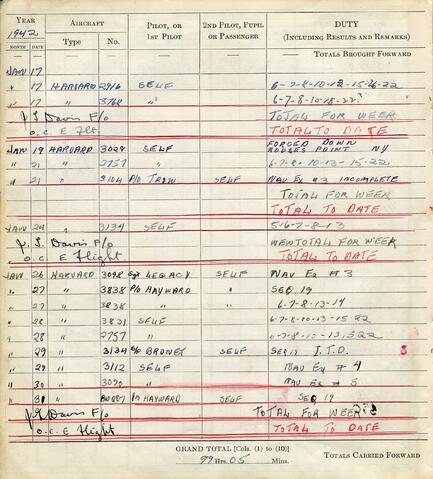 YEAR AIRCRAFT PILOT, OR 2ND PILOT, PUPIL DUTY
1942 Type No. 1ST PILOT OR PASSENGER (INCLUDING RESULTS AND REMARKS)
MONTH DATE
TOTALS BROUGHT FORWARD
JAN 17
" 17 HARVARD 2916 SELF
" 17 " 3762 " 6-7-8-10-18-22
J.S. Davis F/o TOTAL FOR WEEK
O.C. E Flt TOTAL TO DATE
JAN 19 HARVARD 3029 SELF FORCED DOWN
ROUSES POINT NY
" 21 " 2757 " 6-7-8-10-13-15-22
" 21 " 3104 P/O TROW SELF NAV EX #3 INCOMPLETE
TOTAL FOR WEEK
TOTAL TO DATE
JAN 24 " 3134 SELF 5-6-7-8-13
J. S. Davis F/o TOTAL FOR WEEK
O.C. E Flight TOTAL TO DATE
JAN 26 HARVARD 3098 Sgt LEGACY SELF NAV EX #3
" 27 " 3838 P/O HAYWARD " SEQ 19
" 27 " 3838 " 6-7-8-13-14
" 28 " 3831 SELF 6-7-8-10-13-15-22
" 28 " 2757 "
" 29 " 3134 BRUNET SELF SEQ 19 I.T.D.
" 29 " 3112 SELF NAV EX #4
" 30 " 3090 " NAV EX #5
" 30 " HAYWARD SELF SEQ 19
J.S. Davis F/o TOTAL FOR WEEK
O.C. E Flight TOTAL TO DATE
GRAND TOTAL [Cols. (1) to (10)]
99 Hrs. 05 Mins.
TOTALS CARRIED FORWARD